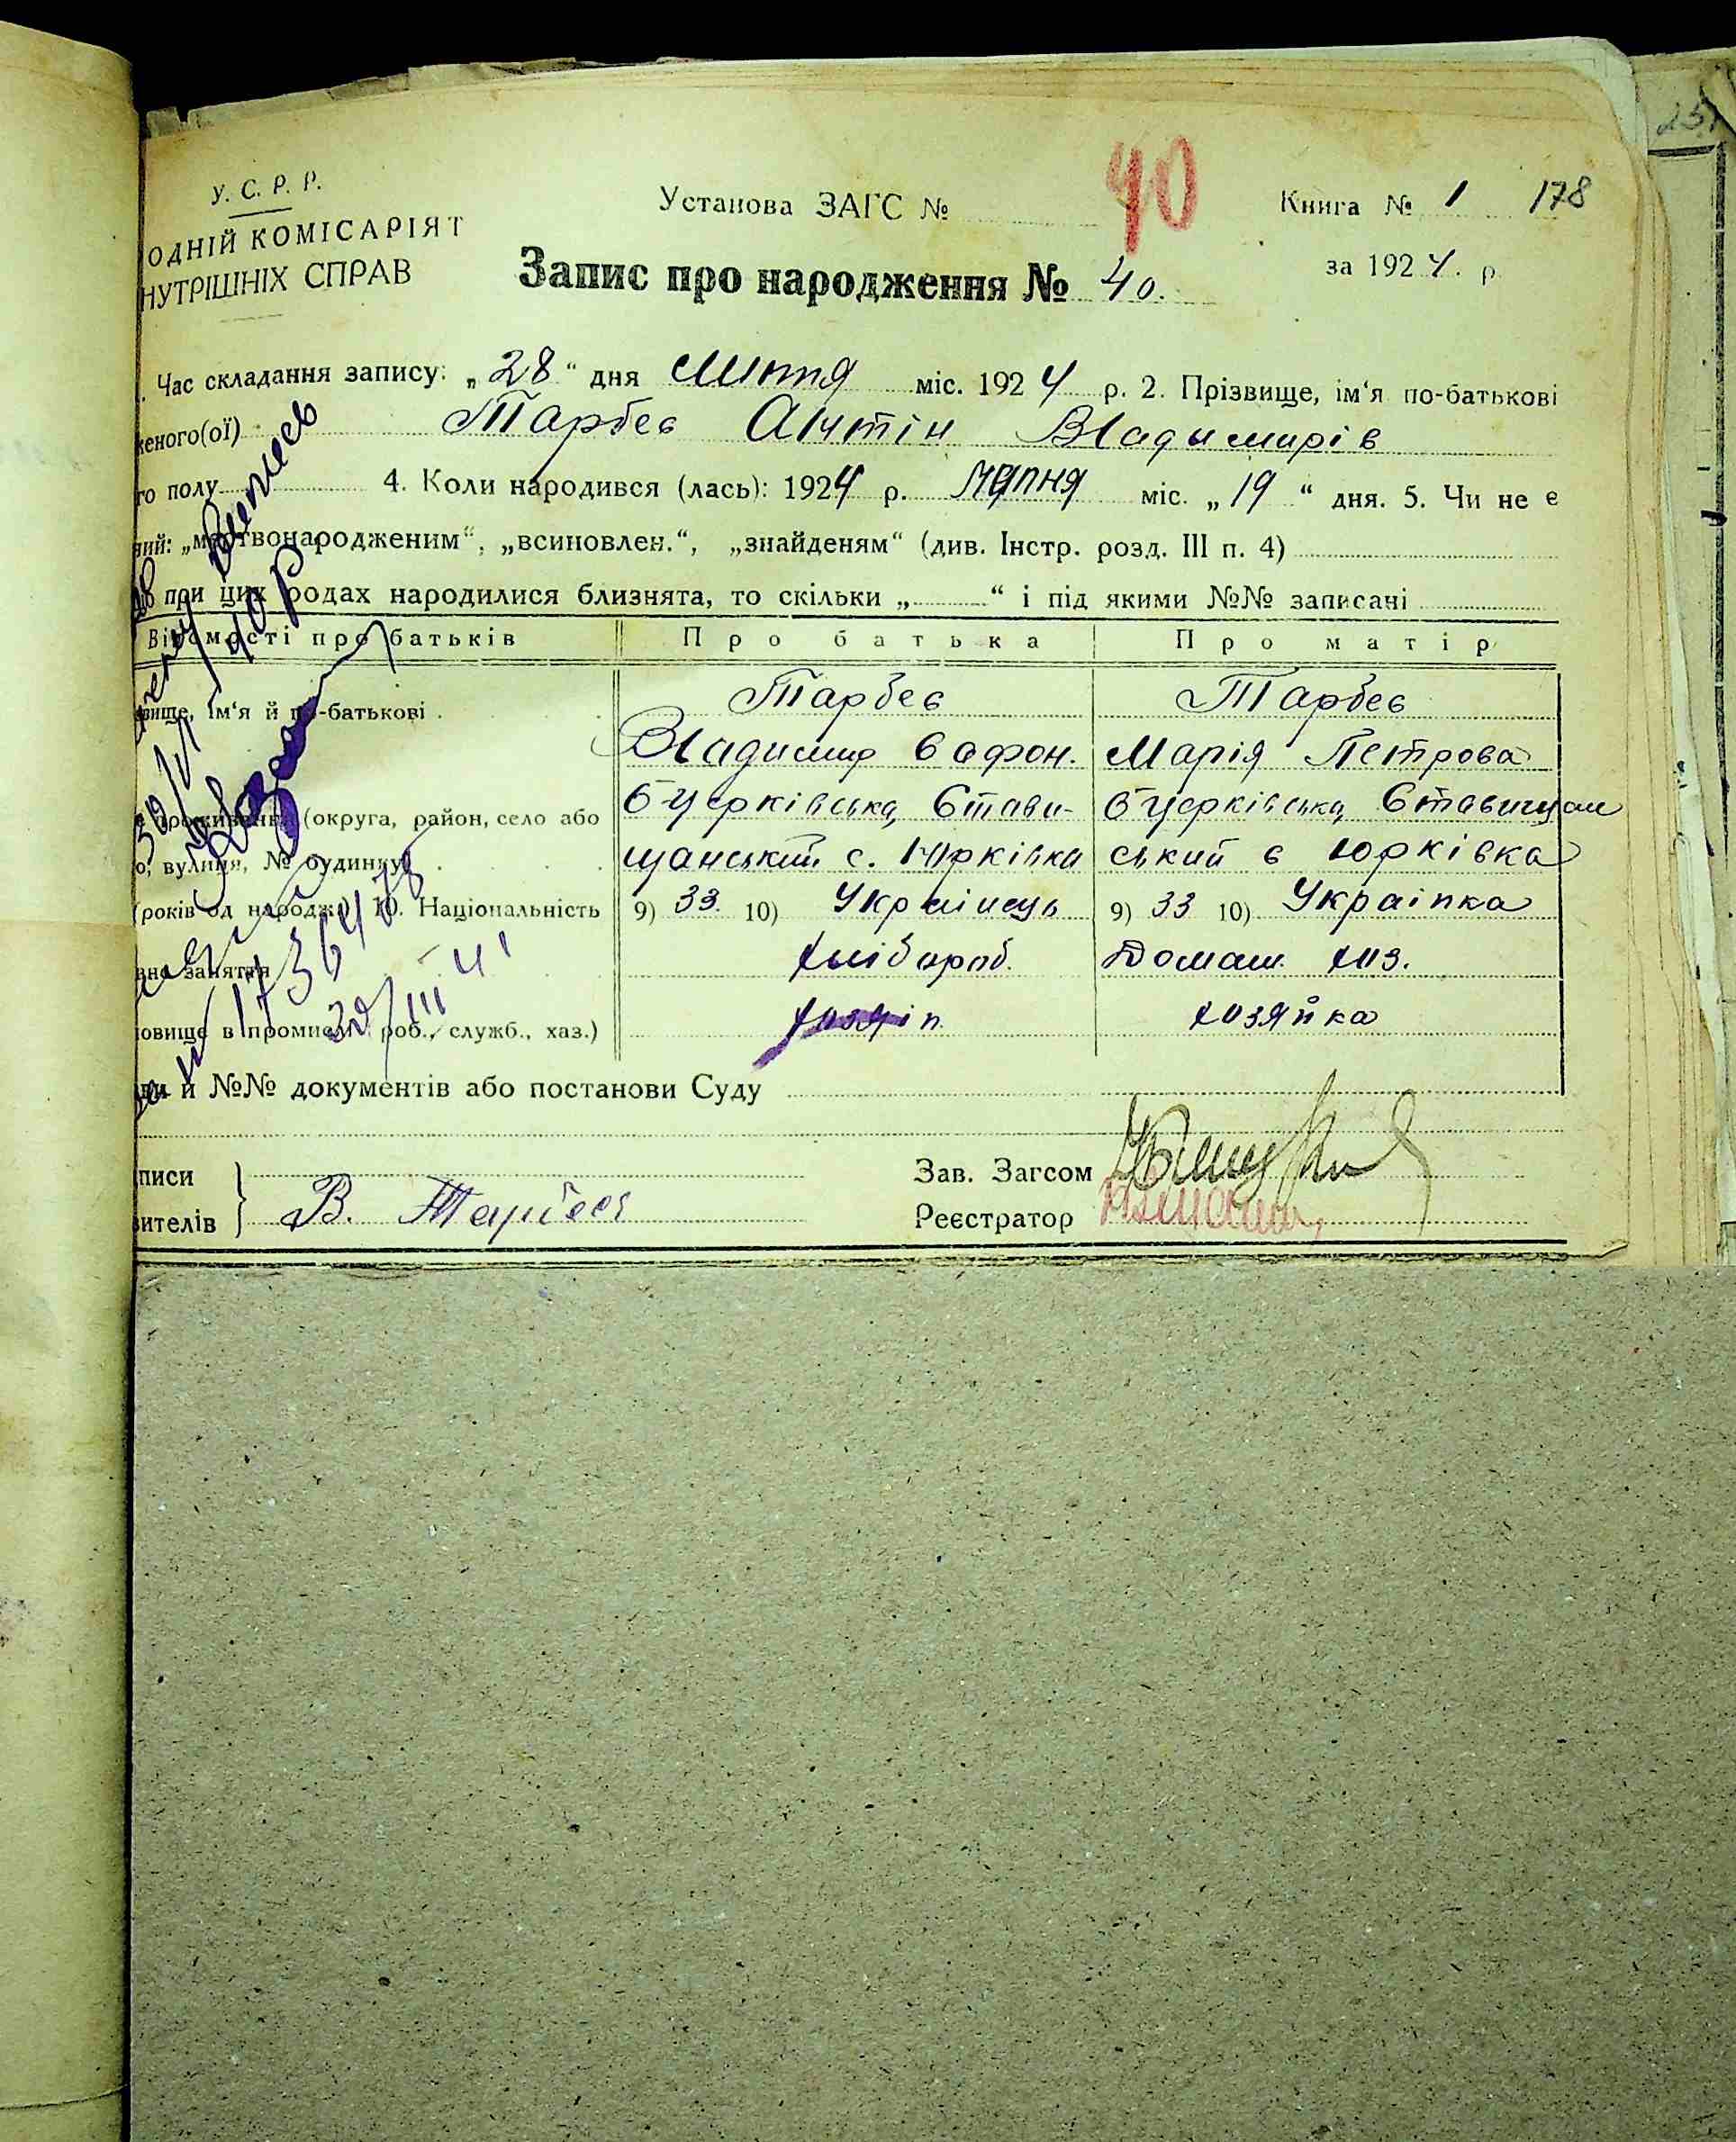 У. С. Р. Р.
ОДНІЙ КОМІСАРІЯТ
НУТРІШНІХ СПРАВ
Установа ЗАГС №
40
Книга № 1 178
за 1924. р.
Запис про народження № 40.
Час складання запису: „28“ дня липня міс. 1924 р. 2. Прізвище, ім'я по-батькові
женого(ої) Тарбев Антін Владымирів
го полу 4. Коли народився (лась): 1924 р. липня міс. „19“ дня. 5. Чи не є
ний: „мертвонародженим“, „всиновлен.“, „знайденям“ (див. Інстр. розд. III п. 4)
при цих родах народилися близнята, то скільки „ “ і під якими №№ записані
Відомості про батьків Про батька Про матір
вище, ім'я й по-батькові Тарбев Тарбев
Владимир Сафон. Марія Петрова
проживання (округа, район, село або Б Церківська, Стави- Б Церківська, Ставищан
о, вулиця, № будинку) щанський с. Юрківка ський с Юрківка
(років од народж.) 10. Національність 9) 33. 10) Українець 9) 33 10) Українка
вне заняття хлібороб. Домаш. хоз.
овище в промислі роб., служб., хаз.) хозяін хозяйка
ви й №№ документів або постанови Суду
писи
вителів } В. Тарбеев
Зав. Загсом
Реєстратор